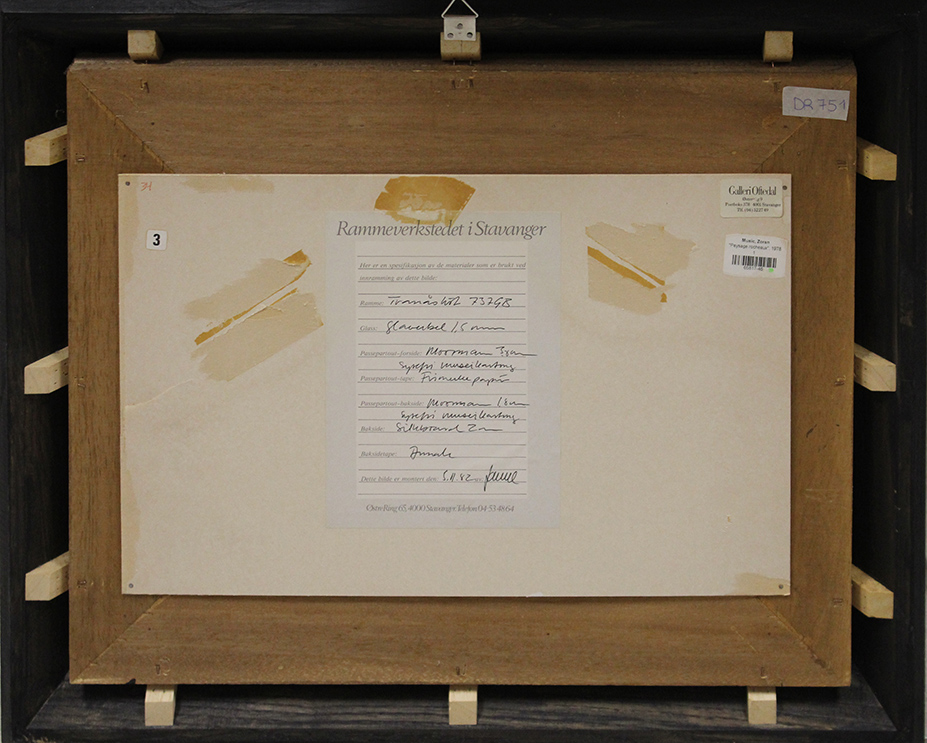 DR 751
31
Galleri Oftedal
3
Music, Zoran
"Paysage rocheux" 1978
Rammeverkstedet i Stavanger
Her er en spesifikasjon av de materialer som er brukt ved
innramming av dette bilde:
Ramme: 737GB
Glass: Glaverbel 1,5 mm
Passepartout-forside: Moorman
Syrefri museikartong
Passepartout-tape: Frimerkepapir
Passepartout-bakside: Moorman
Syrefri museikartong
Bakside:
Baksidetape:
Dette bilde er montert den: 5.11.82 av:
Østre Ring 65, 4000 Stavanger. Telefon 04-53 48 64